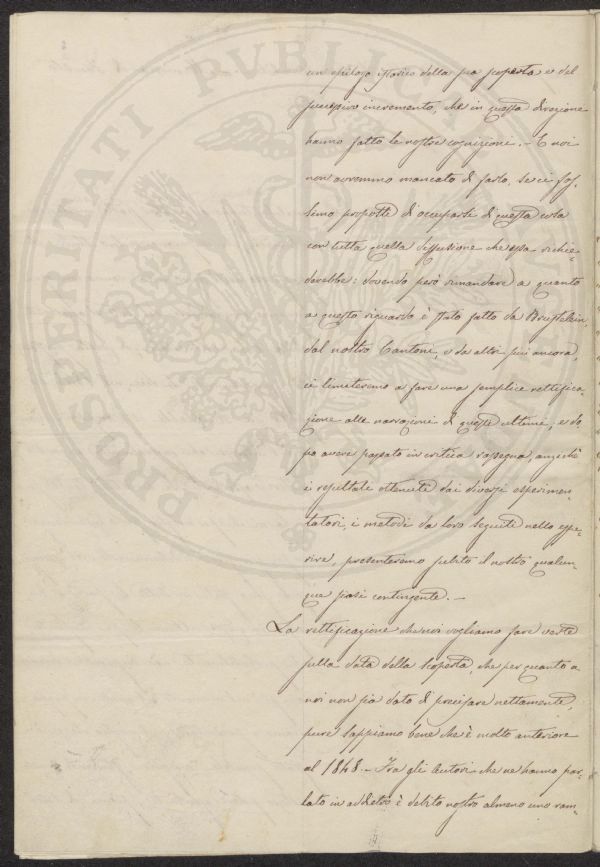 PROSPERITATI PVBLICAE
un epilogo istorico della sua scoperta e del
successivo incremento, che in questa direzione
hanno fatto le nostre cognizioni. - E noi
non avremmo mancato di farlo, se ci fos-
simo proposti di occuparsi di questa cosa
con tutta quella diffusione che essa richie-
derebbe: dovendo però rimandare a quanto
a questo riguardo è stato fatto da Brustlein,
dal nostro Cantoni, e da altri più ancora,
ci limiteremo a fare una semplice rettifica-
zione alle narrazioni di questi ultimi, e do-
po avere passato in critica rassegna, anzichè
i resultati ottenuti dai diversi esperimen-
tatori, i metodi da loro seguiti nello espe-
rire, presenteremo subito il nostro qualun-
que siasi contingente. -
La rettificazione che noi vogliamo fare verte
sulla data della scoperta, che per quanto a
noi non sia dato di precisare nettamente,
pure sappiamo bene che è molto anteriore
al 1848. - Fra gli Autori che ne hanno par-
lato in addietro è debito nostro almeno uno ram-